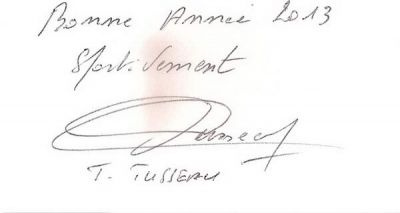 Bonne Année 2013
Sportivement
T. TUSSEAU